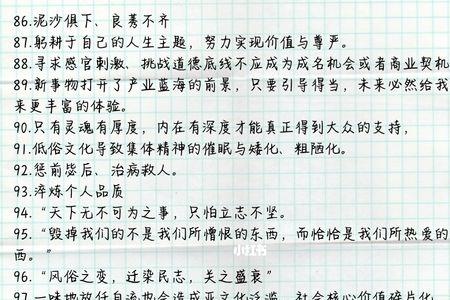 86.泥沙俱下、良莠不齐
87.躬耕于自己的人生主题，努力实现价值与尊严。
88.寻求感官刺激、挑战道德底线不应成为成名机会或者商业契机
89.新事物打开了产业蓝海的前景，只要引导得当，未来必然给我
来更丰富的体验。
90.只有灵魂有厚度，内在有深度才能真正得到大众的支持，
91.低俗文化导致集体精神的催眠与矮化、粗陋化。
92.惩前毖后、治病救人。
93.淬炼个人品质
94.“天下无不可为之事，只怕立志不坚。
95.“毁掉我们的不是我们所憎恨的东西，而恰恰是我们所热爱的
西。”
小红书
96.“风俗之变，迁染民志，关之盛衰”
97.一味地放任自流也会造成亚文化泛滥、社会核心价值碎片化